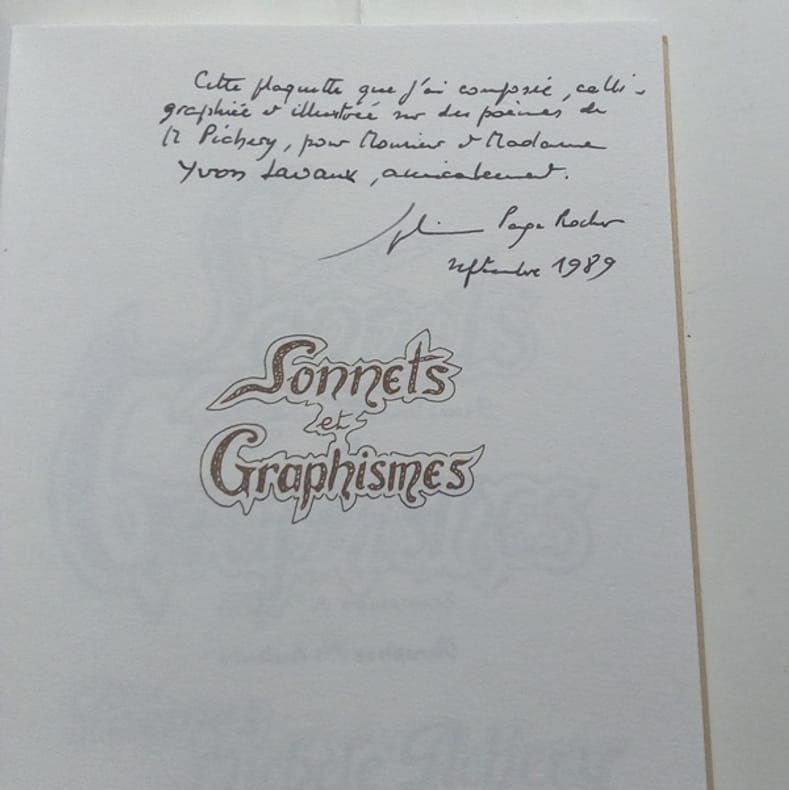 Cette plaquette que j'ai composée, calli-
graphiée et illustrée sur des poèmes de
M Pichery, pour Monsieur et Madame
Yvon Lavaux, amicalement.
Rocher
septembre 1989
Sonnets
et
Graphismes